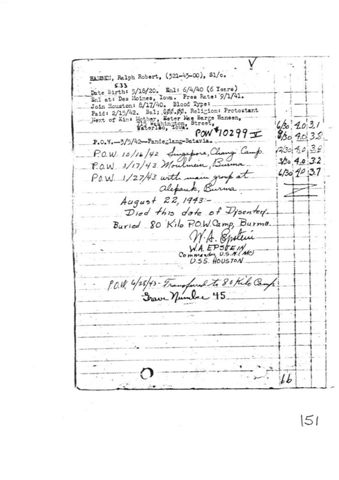 HANSEN, Ralph Robert, (321-43-00), S1/c.
Date Birth: 9/18/20. Enl: 6/4/40 (6 Years)
Enl at: Des Moines, Iowa. Pres Rate: 9/1/41.
Join Houston: 8/17/40. Blood Type:
Paid: 2/15/42. Bal: Religion: Protestant
Next of Kin: Mother, Ester Mae Marge Hansen,
Washington, Street,
Waterloo, Iowa.
POW #10299 V
6/30 4.0 3.1
9/30 4.0 3.5
P.O.W.--3/5/42--Pandeglang-Batavia.
P.O.W. 10/16/42 Singapore, Changi Camp.
12/30 4.0 3.5
P.O.W. 1/17/43 Moulmein, Burma
3/30 4.0 3.2
P.O.W. 1/27/43 with main group at
6/30 4.0 3.7
Alepauk, Burma
August 22, 1943-
Died this date of Dysentery.
Buried 80 Kilo P.O.W. Camp, Burma.
W. A. Epstein
W.A. EPSTEIN
Commander, U.S.N. (MC)
U.S.S. HOUSTON
P.O.W. 6/28/43- Transferred to 80 Kilo Camp
Grave Number 45.
66
151